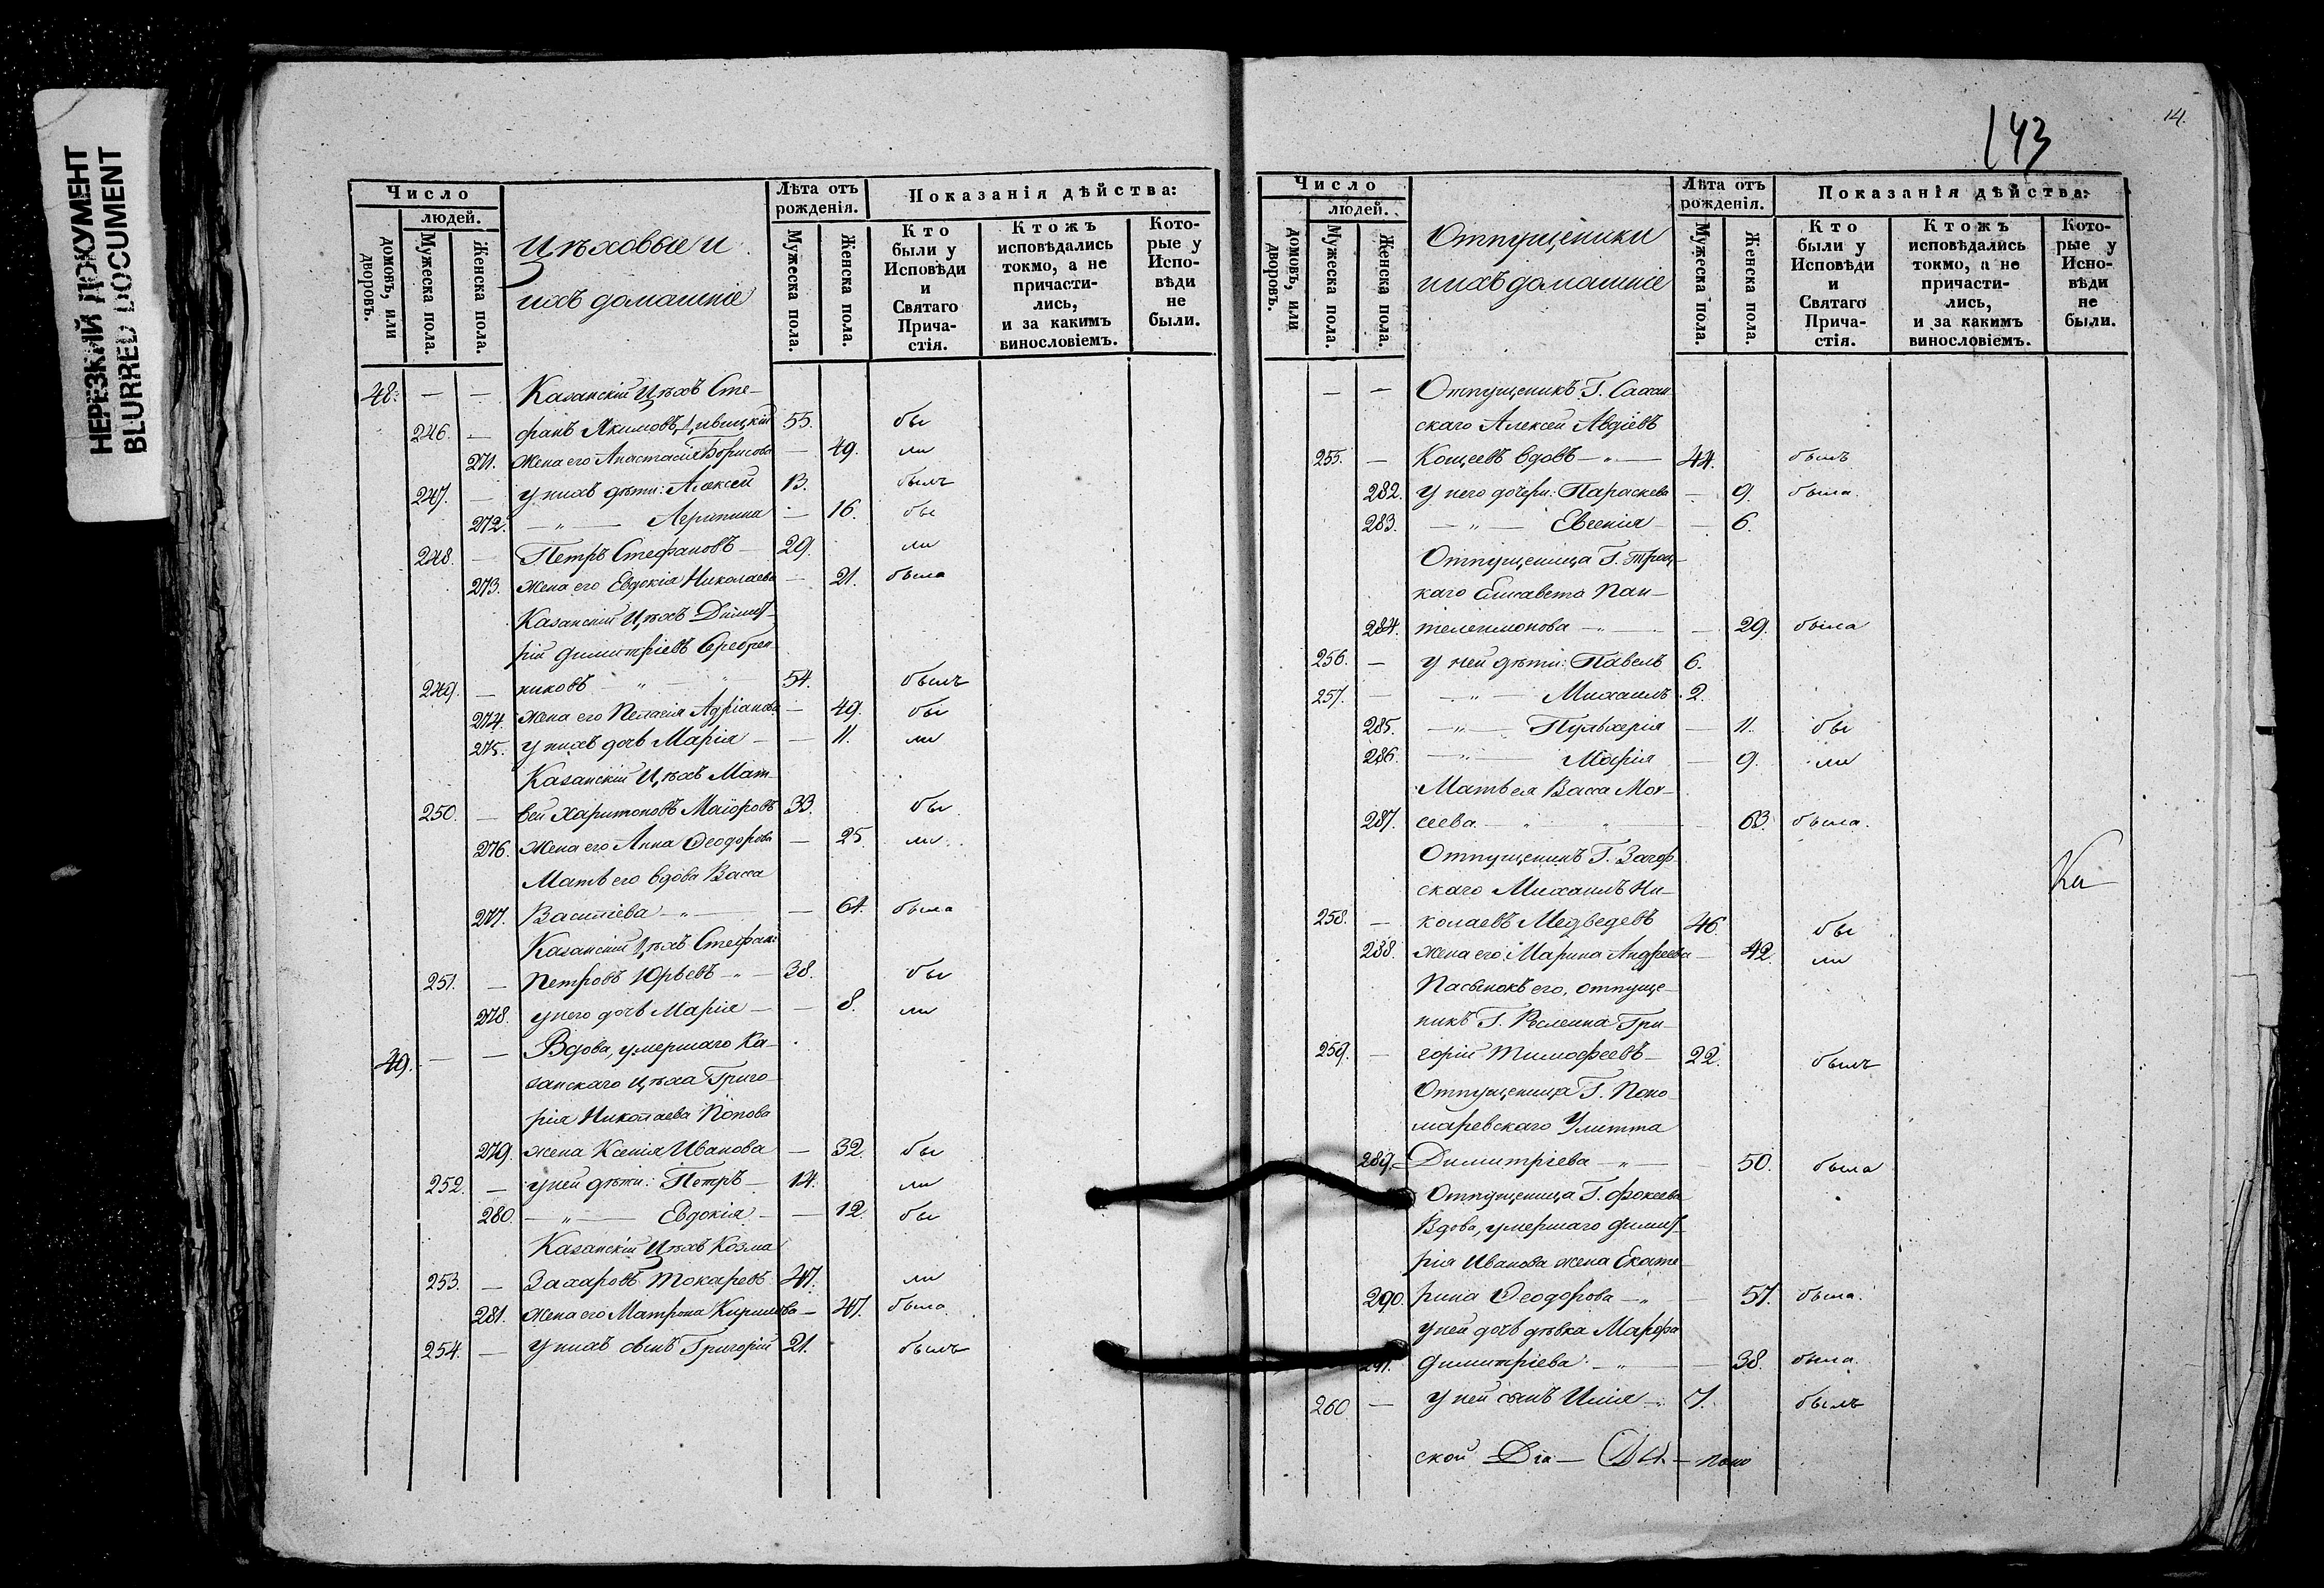 НЕРЕЗКИЙ ДОКУМЕНТ
BLURRED DOCUMENT
Число
людей.
домовъ, или дворовъ.
Мужеска пола.
Женска пола.
Цѣховые и
ихъ домашніе
Лѣта отъ рожденія.
Мужеска пола.
Женска пола.
Показанія дѣйства:
Кто были у Исповѣди и Святаго Прича-стія.
Ктожъ исповѣдались токмо, а не причасти-лись, и за какимъ винословіемъ.
Кото-рые у Испо-вѣди не были.
48. — — Казанскій Цѣхъ Сте-
246. — фанъ Якимовъ 55. бы
271. жена его Анастасія Борисова — 49. ли
247. — у нихъ дѣти: Алексей 13. былъ
272. — „ — — 16. бы
248. — Петръ Стефановъ — 29. ли
273. жена его Евдокія Николаева — 21. была
Казанскій Цѣхъ Димит-
рій Димитріевъ Серебрен-
249. — никовъ — „ — „ 54. былъ
274. жена его Пелагія Адріанова — 49. бы
275. у нихъ дочь Марія — — 11. ли
Казанскій Цѣхъ Мат-
250. — вей Харитоновъ Маіоровъ 33. бы
276. жена его Анна Ѳеодорова — 25. ли
Мать его вдова Васса
277. Василіева — „ — — 61. была
Казанскій Цѣхъ Стефанъ
251. — Петровъ Юрьевъ — „ — 38. бы
278. у него дочь Марія — — 8. ли
49. — — Вдова, умершаго Ка-
занскаго Цѣха Григо-
рія Николаева Попова
279. жена Ксенія Иванова — 32. бы
252. — у ней дѣти: Петръ — 14. ли
280. — „ — Евдокія — — 12. бы
Казанскій Цѣхъ Козма
253. — Захаровъ Токаревъ 47. ли
281. жена его Матрона Кирилова — 47. была
254. — у нихъ сынъ Григорій 21. былъ
143
14.
Число
людей.
домовъ, или дворовъ.
Мужеска пола.
Женска пола.
Отпущеники
и ихъ домашніе
Лѣта отъ рожденія.
Мужеска пола.
Женска пола.
Показанія дѣйства:
Кто были у Исповѣди и Святаго Прича-стія.
Ктожъ исповѣдались токмо, а не причасти-лись, и за какимъ винословіемъ.
Кото-рые у Испо-вѣди не были.
— — Отпущеникъ Г. Сахан-
скаго Алексей Авдіевъ
255. — Кощеевъ вдовъ — „ — 44. былъ
282. у него дочери: Параскева — 9. была.
283. — „ — Евгенія — — 6.
Отпущеница Г. Троц-
каго Елисавета Пан-
284. телеимонова — „ — — 29. была
256. — у ней дѣти: Павелъ 6.
257. — — „ — Михаилъ 2.
285. — „ — Пульхерія — 11. бы
286. — „ — Марія — 9. ли
Мать ея Васса Мои-
287. сеева — „ — „ — 63. была.
Отпущеникъ Г. Загор-
скаго Михаилъ Ни-
258. — колаевъ Медведевъ 46. бы
288. жена его Марина Андреева — 42. ли
Пасынокъ его, отпуще-
никъ Г. Гри-
259. — горій Тимофеевъ — 22. былъ
Отпущеница Г. Поно-
маревскаго Улитта
289. Димитріева — „ — — 50. была
Отпущеница Г. Фокеева
Вдова, умершаго Димит-
рія Иванова жена Екате-
290. рина Ѳеодорова — „ — 57. была.
у ней дочь дѣвка Марфа
291. Димитріева — „ — — 38. была.
260 — у ней сынъ Илія — „ 7. былъ
Ка
ской Діа — — поно